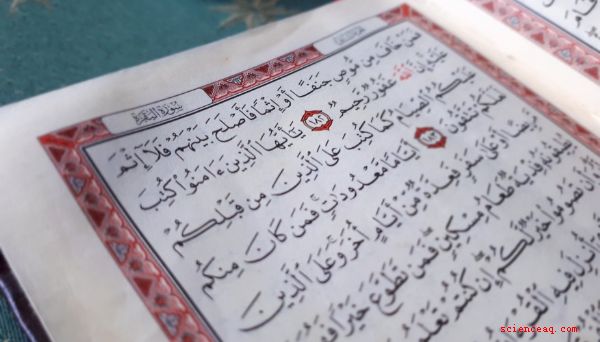 سُورَةُ الْبَقَرَةِ
فَمَنْ خَافَ مِن مُّوصٍ جَنَفًا أَوْ إِثْمًا فَأَصْلَحَ بَيْنَهُمْ فَلَآ إِثْمَ
عَلَيْهِ إِنَّ اللَّهَ غَفُورٌ رَّحِيمٌ ١٨٢ يَٰٓأَيُّهَا الَّذِينَ ءَامَنُوا۟ كُتِبَ
عَلَيْكُمُ الصِّيَامُ كَمَا كُتِبَ عَلَى الَّذِينَ مِن قَبْلِكُمْ
لَعَلَّكُمْ تَتَّقُونَ ١٨٣ أَيَّامًا مَّعْدُودَٰتٍ فَمَن كَانَ مِنكُم
مَّرِيضًا أَوْ عَلَىٰ سَفَرٍ فَعِدَّةٌ مِّنْ أَيَّامٍ أُخَرَ وَعَلَى الَّذِينَ
يُطِيقُونَهُ فِدْيَةٌ طَعَامُ مِسْكِينٍ فَمَن تَطَوَّعَ خَيْرًا
وَأَن تَصُومُوا۟ خَيْرٌ لَّكُمْ إِن كُنتُمْ تَعْلَمُونَ
أُنزِلَ فِيهِ الْقُرْءَانُ
scienceaq.com